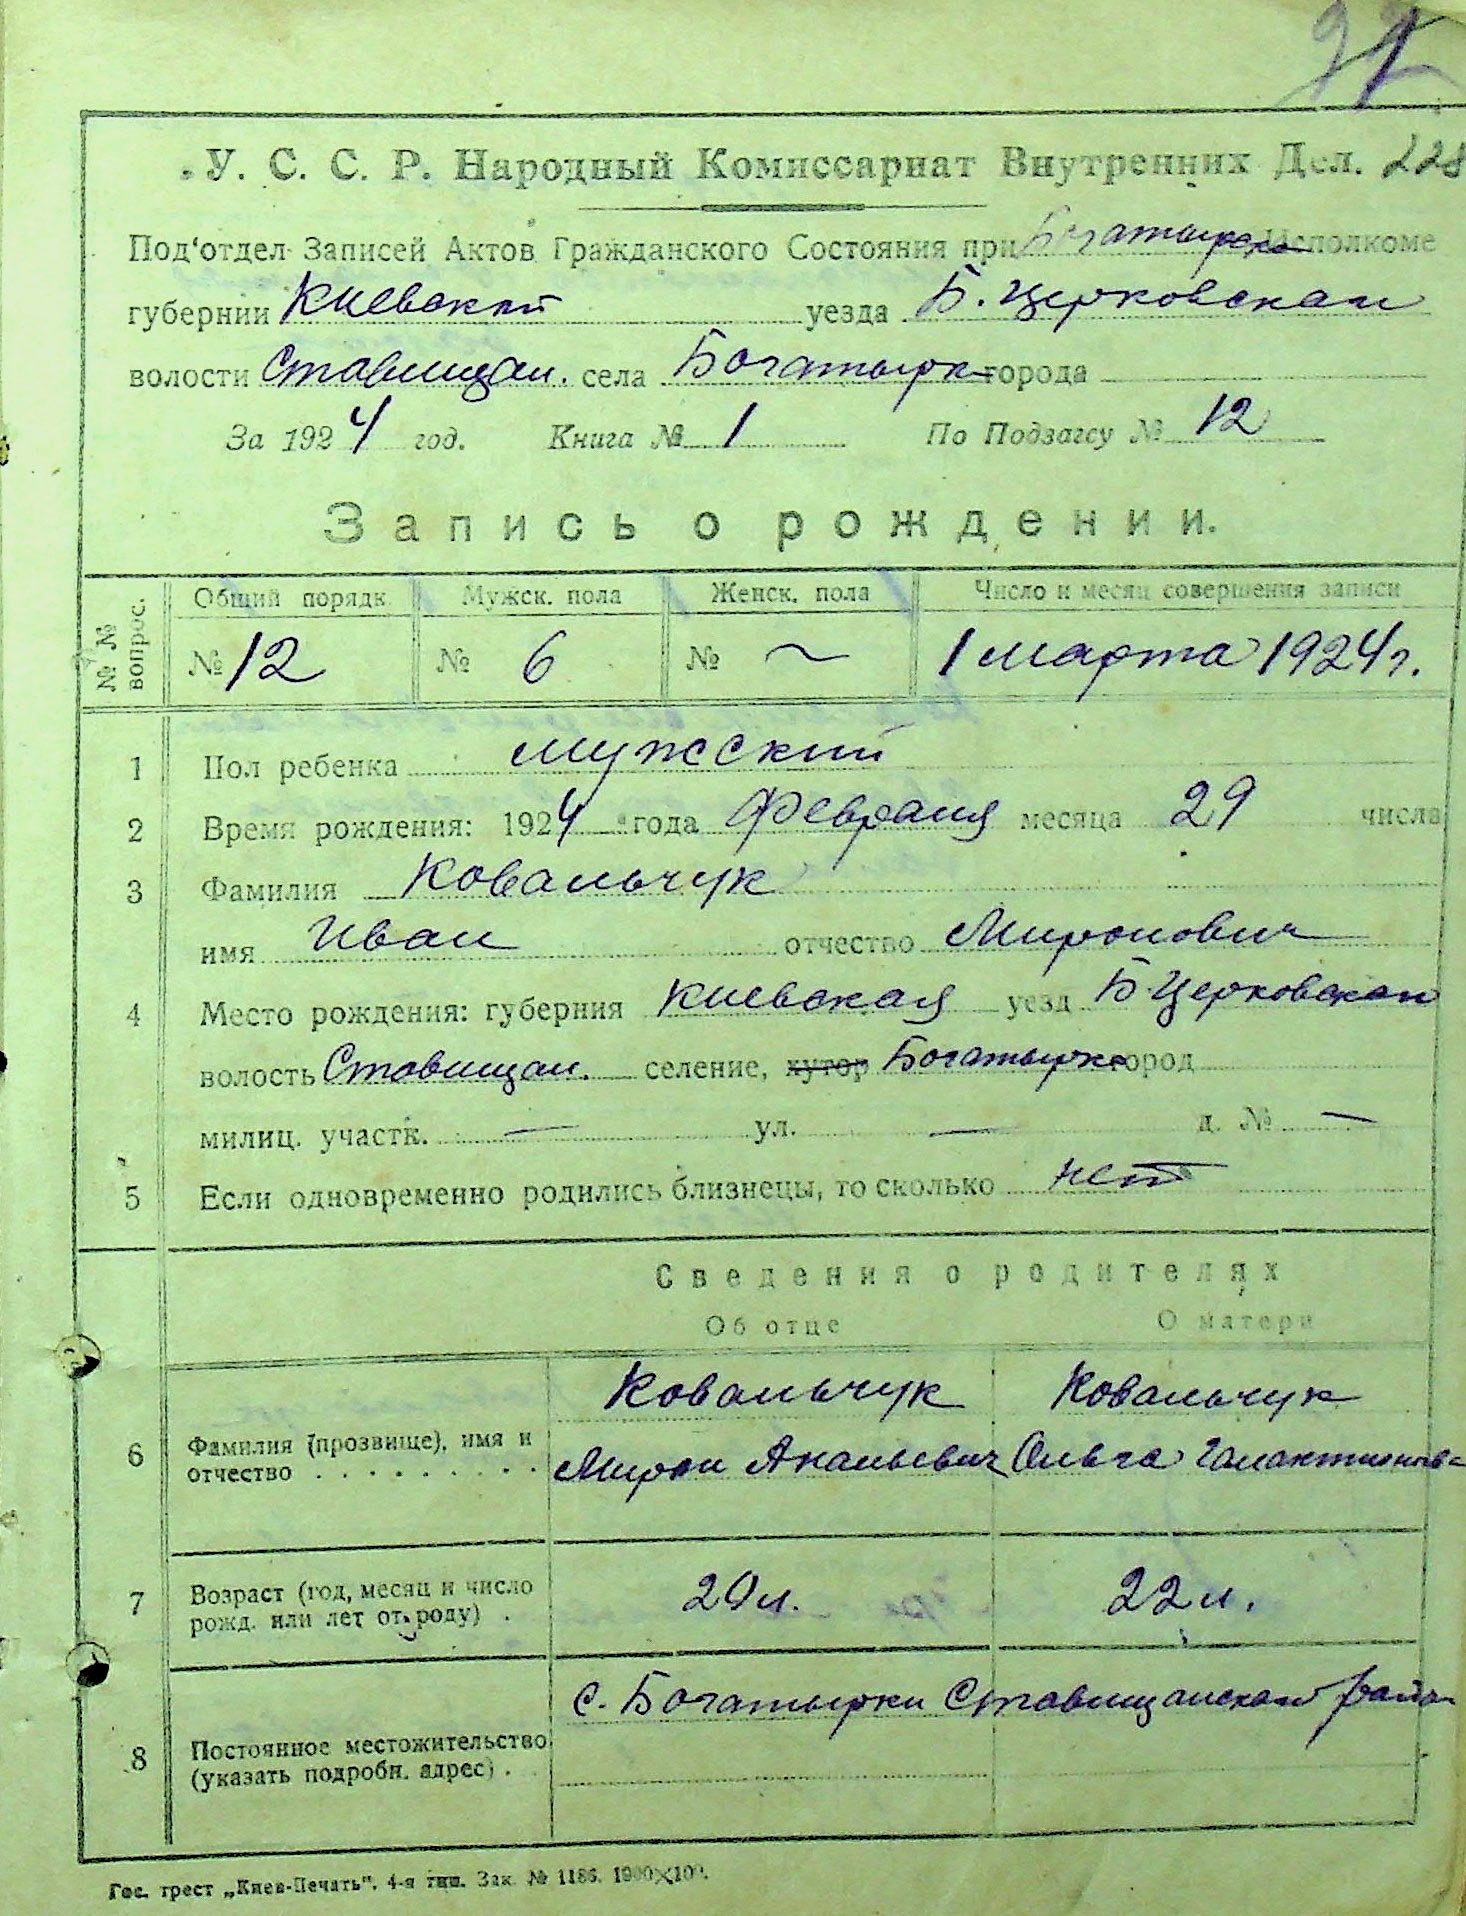 У. С. С. Р. Народный Комиссариат Внутренних Дел. 228
Под'отдел Записей Актов Гражданского Состояния при Богатырско Исполкоме
губернии Киевской уезда Б. Церковская
волости Ставищан. села Богатырка города
За 1924 год. Книга № 1 По Подзагсу № 12
Запись о рождении.
№ № вопрос. Общий порядк. Мужск. пола Женск. пола Число и месяц совершения записи
№ 12 № 6 № ~ 1 марта 1924 г.
1 Пол ребенка мужский
2 Время рождения: 1924 года Февраля месяца 29 числа
3 Фамилия Ковальчук
имя Иван отчество Миронович
4 Место рождения: губерния Киевская уезд Б. Церковская
волость Ставищан. селение, хутор Богатырка город
милиц. участк. — ул. — д. № —
5 Если одновременно родились близнецы, то сколько нет
Сведения о родителях
Об отце О матери
Ковальчук Ковальчук
6 Фамилия (прозвище), имя и отчество . . . . . . . . . Мирон Ананьевич Ольга Галактионовa
7 Возраст (год, месяц и число рожд. или лет от роду) . 29 л. 22 л.
с. Богатырки Ставищанского район
8 Постоянное местожительство (указать подробн. адрес) .
Гос. трест „Киев-Печать". 4-я тип. Зак. № 1186. 1000×100.